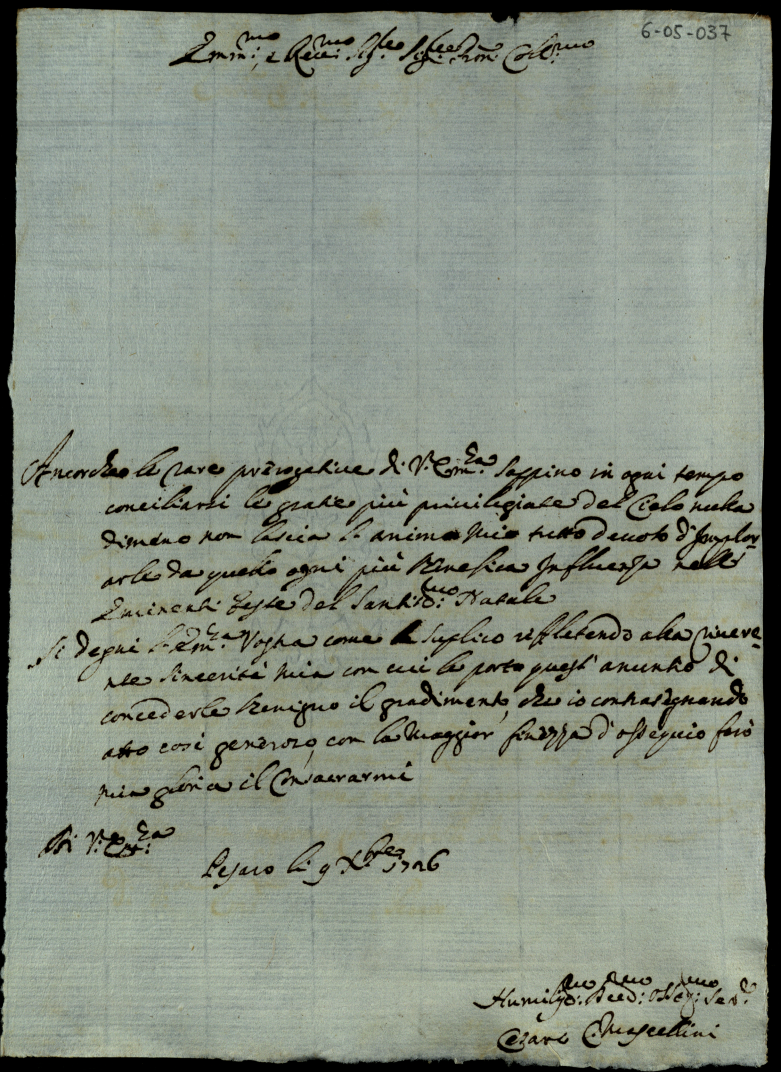 6-05-037
Emm:mo, e Reve:mo Sig:re Sig:re Pron: Col:mo
Ancorche le rare prerogative di V: Em:za sappino in ogni tempo
conciliarsi le gratie più priviligiate del Cielo nulla
dimeno non lascia l'animo mio tutto devoto d'Implor-
arle da quello ogni più Benefica Influenza nelle
Eminenti feste del Santis:mo Natale
Si degni l'Em:za Vostra come la suplico riffletendo alla rivere-
nte sincerità mia con cui le porto quest' anuntio di
concederle Benigno il gradimento, che io contrasegnando
atto così generoso, con la maggior finezza d'ossequio farò
mia gloria il Consacrarmi
Di V: Em:za
Pesaro li 9 Xbre 1726
Humiliss:mo Dev:mo Osseq:mo Ser:e
Cesare Mascellini